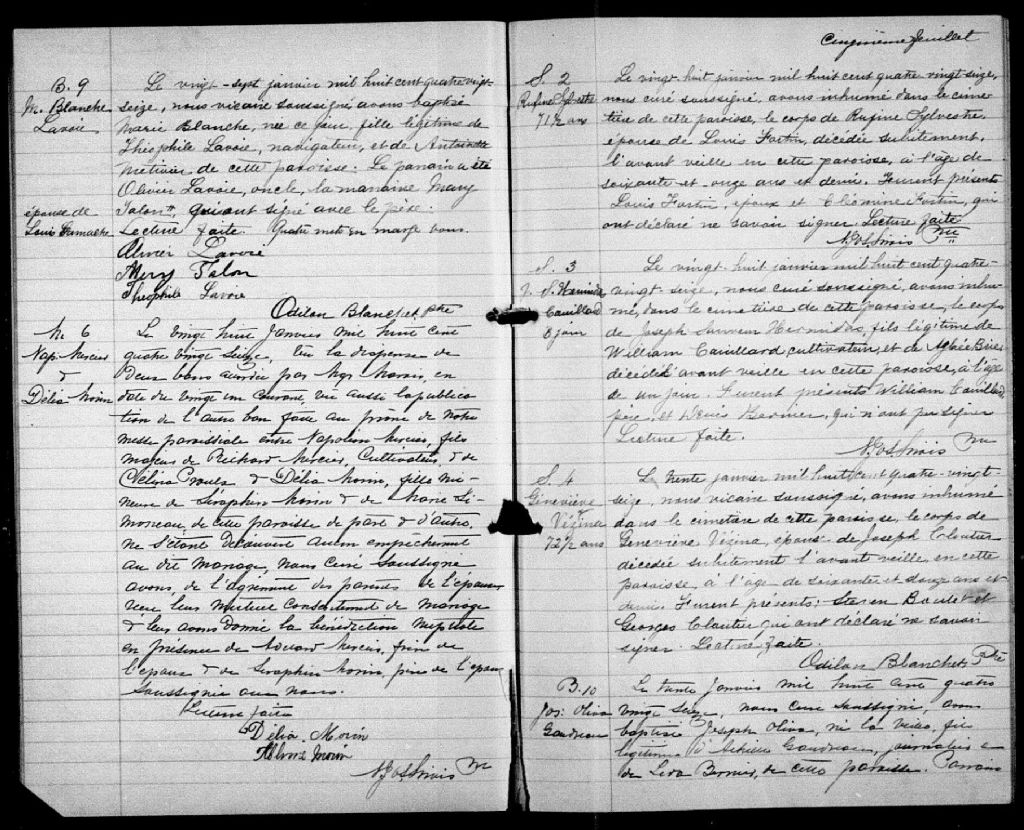 B. 9
M. Blanche
Lavoie
épouse de
Louis
Le vingt-sept janvier mil huit cent quatre vingt-
seize, nous vicaire soussigné avons baptisé
Marie Blanche, née ce jour, fille légitime de
Théophile Lavoie, navigateur, et de Antoinette
Métivier de cette paroisse. Le parrain a été
Olivier Lavoie, oncle, la marraine Mary
Talon, qui ont signé avec le père.
Lecture faite. Quatre mots en marge bons.
Olivier Lavoie
Mery Talon
Théophile Lavoie
Odilon Blanchet ptre
M. 6
Nap. Mercier
&
Délia Morin
Le vingt huit Janvier mil huit cent
quatre vingt Seize, Vu la dispense de
Deux bans accordée par Mgr Marois, en
date du vingt un Courant, vu aussi la publica
tion de l'autre ban faite au prône de notre
messe paroissiale entre Napoléon Mercier, fils
majeur de Richard Mercier, Cultivateur, & de
Célina Proulx & Délia Morin, fille mi-
neure de Séraphin Morin & de Marie Si-
moneau de cette paroisse de part & d'autre,
ne s'étant découvert aucun empêchement
au dit mariage, Nous Curé Soussigné
avons, de l'agrément des parents de l'épouse
reçu leur mutuel Consentement de mariage
& leur avons donné la bénédiction nuptiale
en présence de Edouard Mercier, frère de
l'époux & de Séraphin Morin, père de l'épouse
Soussignée avec nous.
Lecture faite
Délia Morin
Morin
N. J. Sirois ptre
Cinquième feuillet
S. 2
Rufine Sylvestre
71 1/2 ans
Le vingt-huit janvier mil huit cent quatre vingt seize,
nous curé soussigné, avons inhumé dans le cime-
tière de cette paroisse, le corps de Rufine Sylvestre,
épouse de Louis Fortin, décédée subitement,
l'avant veille en cette paroisse, à l'âge de
soixante et onze ans et demi. Furent présents
Louis Fortin, époux et Eléonore Fortin, qui
ont déclaré ne savoir signer. Lecture faite
N. J. Sirois ptre
S. 3
J. S. Hermidas
Couillard
1 jour
Le vingt-huit janvier mil huit cent quatre-
vingt-seize, nous curé soussigné, avons inhu-
mé, dans le cimetière de cette paroisse, le corps
de Joseph Sauveur Hermidas, fils légitime de
William Couillard cultivateur, et de
décédé l'avant veille en cette paroisse, à l'âge
de un jour. Furent présents William Couillard
père, et Bernier, qui n'ont pu signer
Lecture faite.
N. J. Sirois ptre
S. 4
Geneviève
Vézina
72 1/2 ans
Le trente janvier mil huit cent quatre-vingt-
seize, nous vicaire soussigné, avons inhumé
dans le cimetière de cette paroisse, le corps de
Geneviève Vézina, épouse de Joseph Cloutier
décédée subitement l'avant veille, en cette
paroisse, à l'âge de soixante et douze ans et
demi. Furent présents: Boulet et
Georges Cloutier qui ont déclaré ne savoir
signer. Lecture faite
Odilon Blanchet Ptre
B. 10
Jos: Oliva
Gaudreau
Le trente Janvier mil huit cent quatre
vingt Seize, nous Curé Soussigné, avons
baptisé Joseph Oliva, né la veille, fils
légitime d'Achille Gaudreau, journalier &
de Léda Bernier, de cette paroisse. Parrain